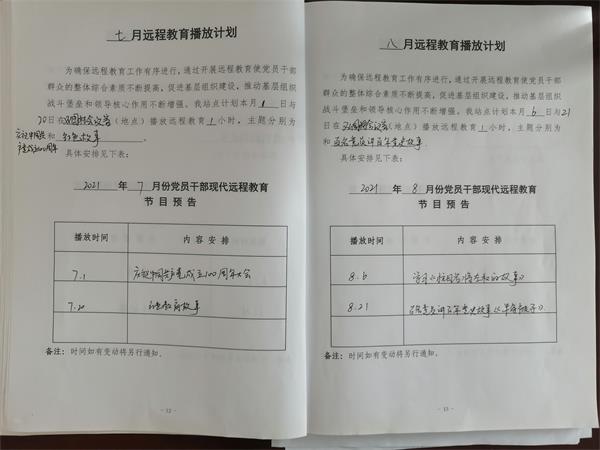 七 月远程教育播放计划
为确保远程教育工作有序进行,通过开展远程教育使党员干部
群众的整体综合素质不断提高,促进基层组织建设,推动基层组织
战斗堡垒和领导核心作用不断增强。我站点计划本月 1 日与
20日在 (地点)播放远程教育 1 小时,主题分别为
和 红色故事
具体安排见下表:
2021 年 7 月份党员干部现代远程教育
节目预告
播放时间 内容安排
7.1 庆祝中国共产党成立100周年大会
7.20 故事
备注: 时间如有变动将另行通知。
- 12 -
八 月远程教育播放计划
为确保远程教育工作有序进行,通过开展远程教育使党员干部
群众的整体综合素质不断提高,促进基层组织建设,推动基层组织
战斗堡垒和领导核心作用不断增强。我站点计划本月 6 日与21
日在 (地点)播放远程教育 1 小时,主题分别为
和 百名党员讲百年党史故事
具体安排见下表:
2021 年 8 月份党员干部现代远程教育
节目预告
播放时间 内容安排
8.6 的故事》
8.21 百名党员讲百年党史故事
备注: 时间如有变动将另行通知。
- 13 -